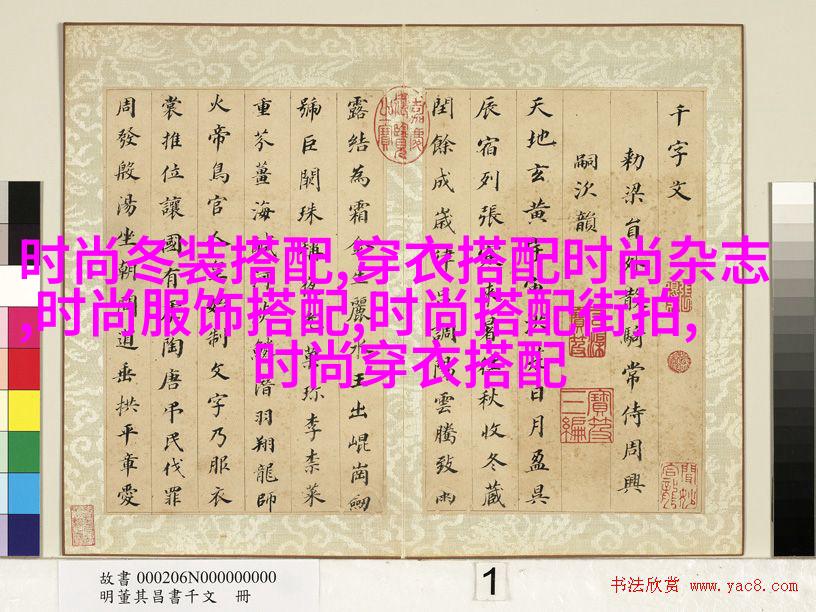 千字文
勅梁員外散騎常侍周興
嗣次韻
天地玄黃宇宙洪荒日月盈昃
辰宿列張寒來暑往秋收冬藏
閏餘成歲律呂調陽雲騰致雨
露結為霜金生麗水玉出崐崗劒
號巨闕珠稱夜光菓珍李柰菜
重芥薑海鹹河淡鱗潛羽翔龍師
火帝鳥官人皇始制文字乃服衣
裳推位讓國有虞陶唐弔民伐罪
周發殷湯坐朝問道垂拱平章愛
嘉慶御覽之寶
寶笈三編
时尚冬装搭配,穿衣搭配时尚杂志
,时尚服饰搭配,时尚搭配街拍,
时尚穿衣搭配
故書 000206N000000000
明董其昌書千文 冊
1
书法欣赏 www.yac8.com